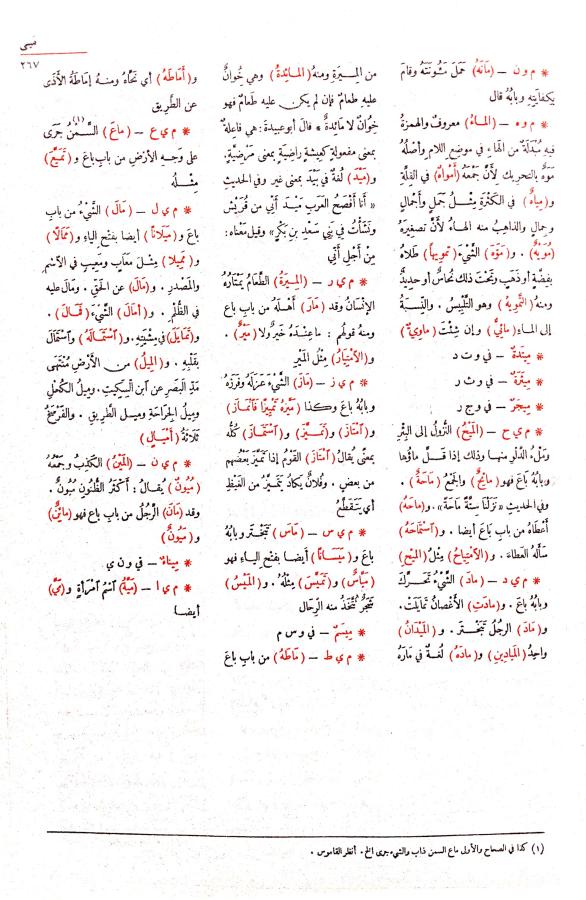 ميى
٢٦٧
* م و ن – (مَانَهُ) حَمَلَ مَئُونَتَهُ وقامَ
بِكفايَتِهِ وبابُهُ قال
* م و ه – (المـاءُ) معروفٌ والهمزةُ
فيه مُبْدَلَةٌ من الهاءِ في موضع اللام وأَصْلُهُ
مَوَهٌ بالتحريك لأنَّ جَمْعَهُ (أَمْوَاهٌ) في القِلَّةِ
و(مِياهٌ) في الكَثْرةِ مِثْلُ جَمَلٍ وأَجْمالٍ
وجِمالٍ والذاهِبُ منه الهاءُ لأنَّ تصغيرَهُ
(مُوَيْهٌ) . و(مَوَّه) الشَّيْءَ (تمويهاً) طَلاهُ
بفِضَّةٍ أو ذَهَبٍ وتَحْتَ ذلك نُحاسٌ أو حديدٌ
ومنهُ (التَّمْوِيهُ) وهو التَّلْبِيسُ . والنِّسْبةُ
إلى الماءِ (مائِيٌّ) وإن شِئْتَ (ماوِيٌّ)
* مِيتَدَةٌ – في و ت د
* مِيثَرَةٌ – في و ث ر
* مِيجَرٌ – في و ج ر
* م ي ح – (المَيْحُ) النُّزولُ إلى البِئْرِ
ومَلْءُ الدَّلْوِ منها وذلك إذا قَلَّ ماؤُها
وبابُهُ بَاعَ فهو (مائِحٌ) والجَمْعُ (ماحَةٌ) .
وفي الحديثِ «نَزَلْنا سِتَّةً ماحَةً» . و(ماحَهُ)
أَعْطاهُ من بابِ بَاعَ أيضا . و(اسْتَماحَهُ)
سأَلَهُ العَطاءَ . و(الامْتِياحُ) مِثْلُ (المَيْحِ)
* م ي د – (مادَ) الشَّيْءُ تَحَرَّكَ
وبابُهُ باعَ . و(مادَتِ) الأَغْصانُ تمايَلَتْ .
و(مَادَ) الرجُلُ تَبَخْتَر . و(المَيْدَانُ)
واحِدُ (المَيادِينِ) و(مادَهُ) لُغةٌ في مَارَهُ
من المِيرَةِ ومنهُ (المـائِدَةُ) وهي خِوانٌ
عليهِ طعامٌ فإن لم يكن عليه طعامٌ فهو
خِوَانٌ لا مَائِدَةٌ * قالَ أبوعبيدةَ : هي فاعِلةٌ
بمعنى مفعولةٍ كعِيشةٍ راضِيَةٍ بمعنى مَرْضِيَّةٍ.
و(مَيْدَ) لُغةٌ في بَيْدَ بمعنى غير وفي الحديثِ
« أنا أَفْصَحُ العَرَبِ مَيْدَ أَنِّي من قُرَيْشٍ
ونَشَأْتُ في بَنِي سَعْدِ بن بَكْرٍ» وقيلَ معناه:
مِنْ أَجْلِ أَنِّي
* م ي ر – (المِيرَةُ) الطَّعامُ يَمْتَارُهُ
الإنسانُ وقد (مَارَ) أَهْلَهُ من باب باع
ومنه قولُهم : ما عِنْدَهُ خَيْرٌ ولا (مَيْرٌ) .
و(الامْتِيارُ) مِثْلُ المَيْرِ
* م ي ز – (مَازَ) الشَّيْءَ عَزَلَهُ وفَرَزَهُ
وبابُهُ باعَ وكذا (مَيَّزه تَمْيِيزًا فانمازَ)
و(امتازَ) و(تَمَيَّزَ) و(استمازَ) كلُّهُ
بمعنًى يقالُ (امْتازَ) القَوْمُ إذا تَمَيَّز بعضُهم
من بعضٍ . وفُلانٌ يَكادُ يَتَمَيَّزُ من الغَيْظِ
أي يَتَقَطَّعُ
* م ي س – (مَاسَ) تَبَخْتَرَ وبابُهُ
باعَ و(مَيَسَانًا) أيضا بفتح الياءِ فهو
(مَيَّاسٌ) و(تَمَيَّسَ) مِثْلُهُ . و(المَيْسُ)
شَجَرٌ تُتَّخَذُ منه الرِّحالُ
* مِيسَمٌ – في و س م
* م ي ط – (ماطَهُ) من باب باعَ
و(أَمَاطَهُ) أي نَحَّاهُ ومنه إماطَةُ الأَذَى
عن الطَّرِيقِ
* م ي ع – (ماعَ) السَّمْنُ(١) جَرَى
على وَجهِ الأَرْضِ من باب باعَ و(تَمَيَّعَ)
مِثْلُه
* م ي ل – (مَالَ) الشَّيْءُ من باب
باعَ و(مَيَلانًا) أيضا بفتح الياءِ و(مَمَالًا)
و(مَمِيلا) مِثْلَ مَعَابٍ ومَعِيبٍ في الاسْمِ
والمَصْدرِ . و(مَالَ) عن الحَقِّ . ومَالَ عليه
في الظُّلْمِ . و(أَمَالَ) الشَّيْءَ (فَمَالَ) .
و(تَمَايَلَ) في مِشْيَتِه . و(اسْتَمَالَهُ) و اسْتَمَالَ
بقَلْبِهِ . و(المِيلُ) من الأَرْضِ مُنْتَهَى
مَدِّ البَصَرِ عن ابنِ السِّكِّيتِ . ومِيلُ الكُحْلِ
ومِيلُ الجِرَاحَةِ ومِيلُ الطَّرِيقِ . والفَرْسَخُ
ثَلاثَةُ (أَمْيَالٍ)
* م ي ن – (المَيْنُ) الكَذِبُ وجَمْعُهُ
(مُيُونٌ) يُقالُ : أَكْثَرُ الظُّنُونِ مُيُونٌ .
وقد (مَانَ) الرَّجُلُ من باب باع فهو (مائِنٌ)
و(مَيُونٌ)
* مِيناءٌ – في و ن ي
* م ي ا – (مَيَّةُ) اسْمُ امْرأةٍ و(مَيُّ)
أيضا
(١) كذا في الصحاح والأولى ماع السمن ذاب والشيء جرى الخ . أنظر القاموس .